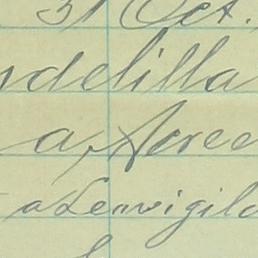 31 Oct.
ndelilla
a, Acree
a Leovigild